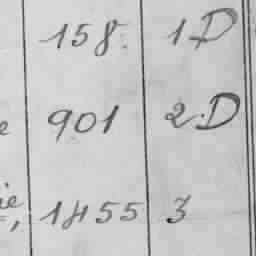 158. 1D
901 2.D
1455 3